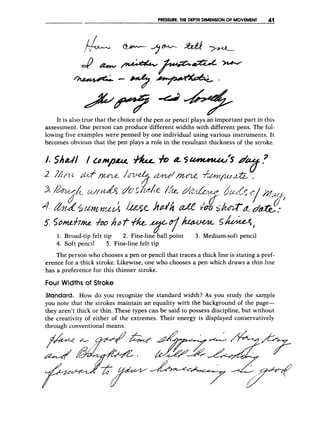 PRESSURE: THE DEPTH DIMENSION OF MOVEMENT 41
How can you tell me
I am neither frustrated nor
neurotic — only sympathetic.
The party is lovely
It is also true that the choice of the pen or pencil plays an important part in this
assessment. One person can produce different widths with different pens. The fol-
lowing five examples were penned by one individual using various instruments. It
becomes obvious that the pen plays a role in the resultant thickness of the stroke.
1. Shall I compare thee to a summer's day?
2. Thou art more lovely and more temperate.
3. Rough winds do shake the darling buds of May,
4. And summer's lease hath all too short a date.
5. Sometime too hot the eye of heaven shines,
1. Broad-tip felt tip 2. Fine-line ball point 3. Medium-soft pencil
4. Soft pencil 5. Fine-line felt tip
The person who chooses a pen or pencil that traces a thick line is stating a pref-
erence for a thick stroke. Likewise, one who chooses a pen which draws a thin line
has a preference for this thinner stroke.
Four Widths of Stroke
Standard. How do you recognize the standard width? As you study the sample
you note that the strokes maintain an equality with the background of the page—
they aren't thick or thin. These types can be said to possess discipline, but without
the creativity of either of the extremes. Their energy is displayed conservatively
through conventional means.
Have a good time shopping in Hong Kong
and Bangkok. Will be looking
forward to your homecoming